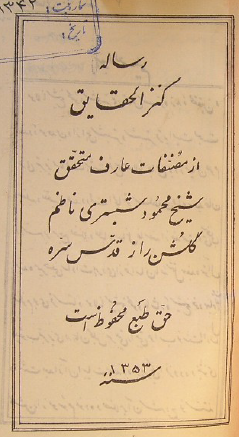 ۱۳۴۲
تاریخ:
رساله
کنز الحقایق
از مصنفات عارف متحقق
شیخ محمود شبستری ناظم
گلشن راز قدّس سرّه
حق طبع محفوظ است
سنه ۱۳۵۳